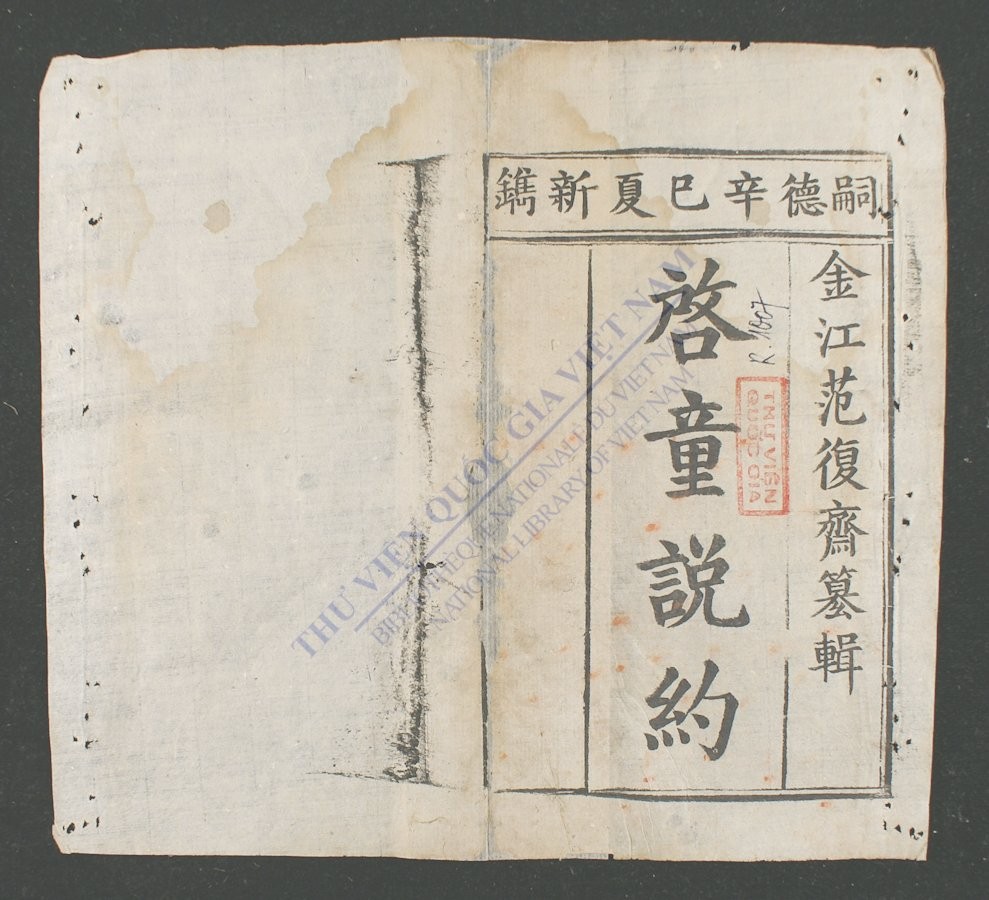 嗣德辛巳夏新鐫
金江范復齋纂輯
啓童説約
R. 1607
THƯ VIỆN
QUỐC GIA
THƯ VIỆN QUỐC GIA VIỆT NAM
BIBLIOTHÈQUE NATIONALE DU VIETNAM
NATIONAL LIBRARY OF VIET NAM